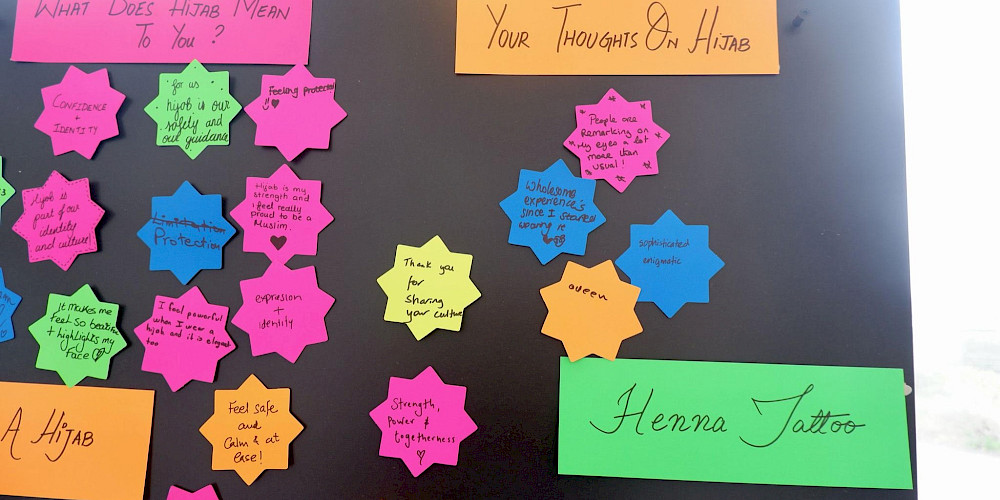 WHAT DOES HIJAB MEAN
TO YOU ?
YOUR THOUGHTS ON HIJAB
CONFIDENCE
+
IDENTITY
for us
hijab is our
safety and
our guidance
Feeling protected
People are
Remarking on
My eyes a lot
more than
usual!
Hijab is
part of our
identity
and culture!
Limitation
Protection
Hijab is my
strength and
I feel really
proud to be a
Muslim.
Wholesome
experience's
since I started
wearing it
sophisticated
enigmatic
Thank you
for
sharing
your culture
queen
It makes me
feel so beautiful
+ highlights my
face
I feel powerful
when I wear a
hijab and it is elegant
too
expression
+
identity
A HIJAB
Feel safe
and
Calm & at
ease!
Strength,
Power &
togetherness
Henna Tattoo